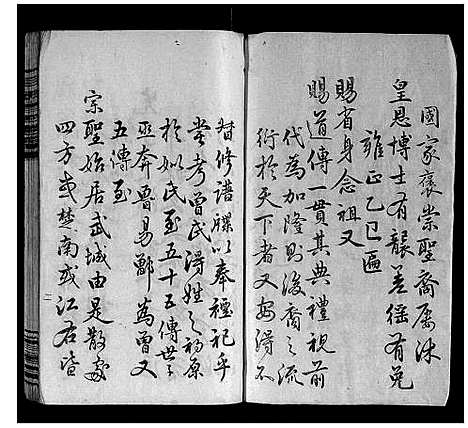 國家褒崇聖裔屢沐
皇恩博士有襲差徭有免
雍正乙巳匾
賜省身念祖又
賜道傳一貫其典禮視前
代為加隆則後裔之流
衍於天下者又安得不
督修譜牒以奉禋祀乎
嘗考曾氏得姓之初原
於姒氏至五十五傳世子
巫奔魯易鄫為曾又
五傳至
宗聖始居武城由是散處
四方或楚南或江右皆
二